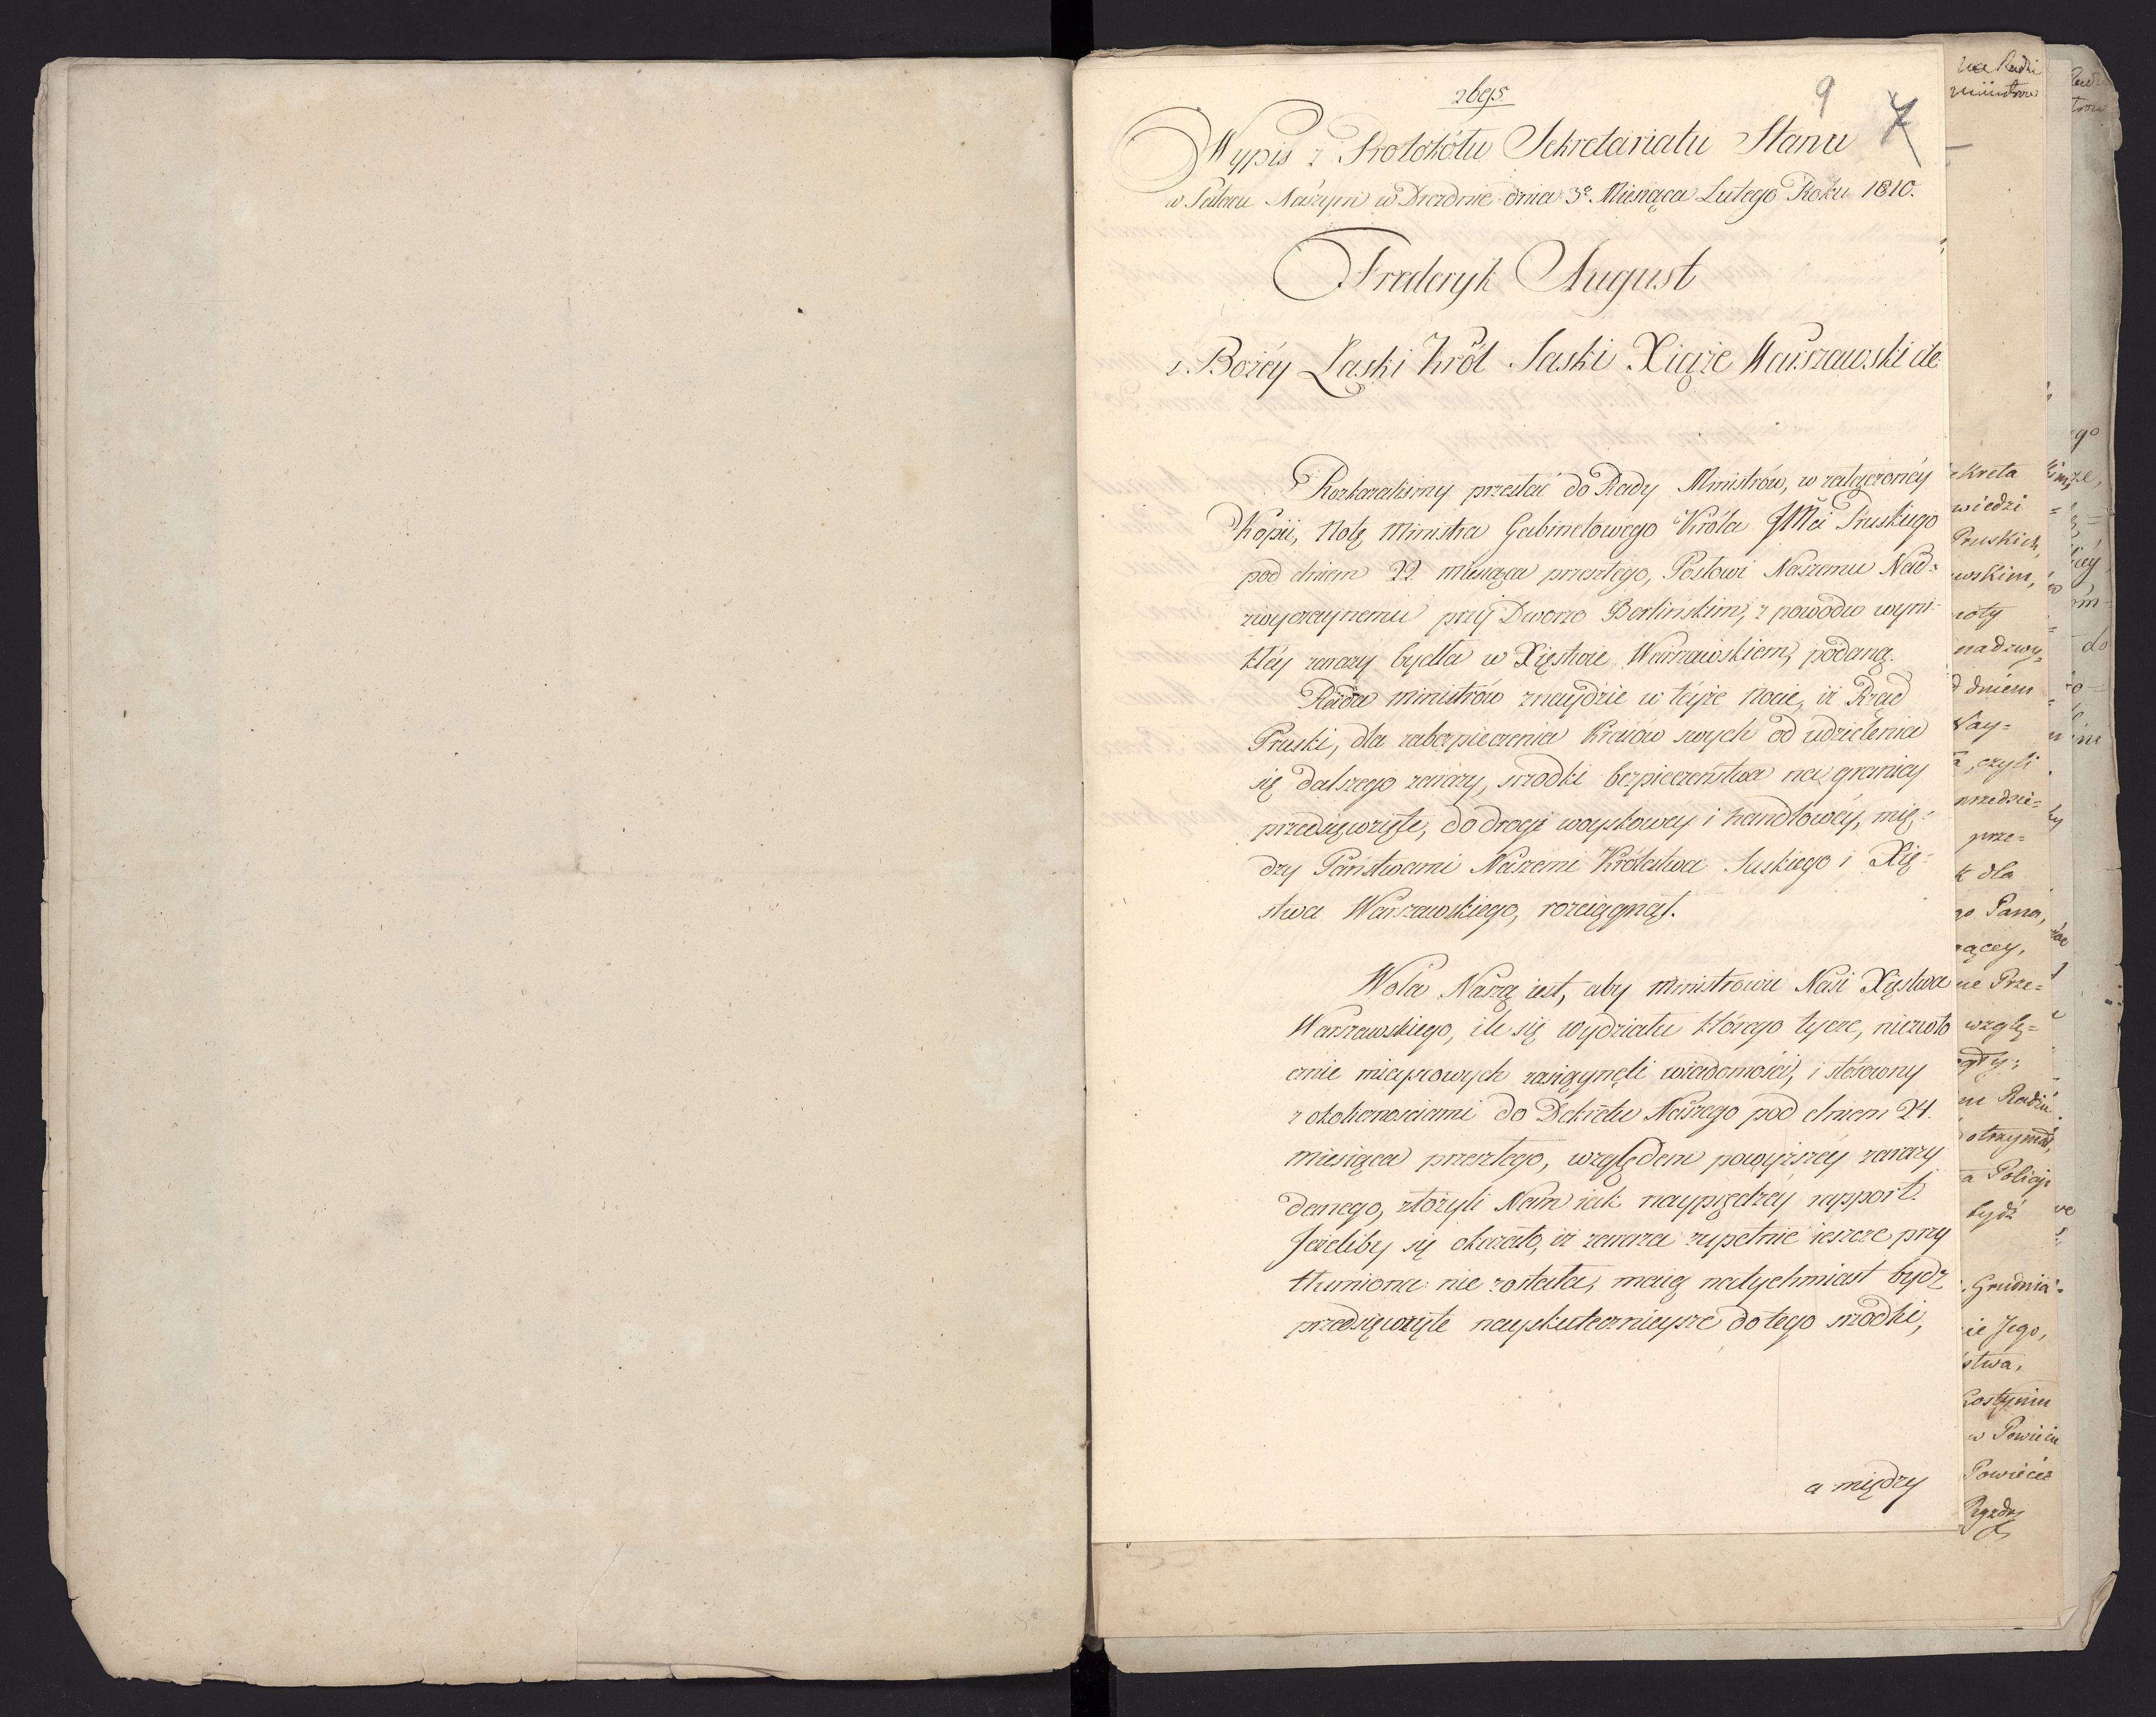 9
Wypis z Protokółu Sekretariatu Stanu
w Pałacu Naszym w Dreźnie dnia 3º Miesiąca Lutego Roku 1810.
Frederyk August
z Bożéy Łaski Król Saski Xiąże Warszawski etc
Rozkazaliśmy przesłać do Rady Ministrów, w załączonéy
Kopii, Notę Ministra Gabinetowego Króla JMci Pruskiego
pod dniem 22 miesiąca przeszłego, Posłowi Naszemu Nad=
zwyczaynemu przy Dworze Berlińskim, z powodu wyni=
kłéy zarazy bydła w Xięstwie Warszawskiem, podaną.
Rada ministrów znaydzie w téyże nocie, iż Rząd
Pruski, dla zabezpieczenia Kraiów swych od udzielenia
się dalszego zarazy, środki bezpieczeństwa na granicy
przedsięwzięte, do drogi woyskowey i handlowéy, mię=
dzy Państwami Naszemi Królestwa Saskiego i Xię=
stwa Warszawskiego, rozciągnął.
Wolą Naszą iest, aby ministrowie Nasi Xięstwa
Warszawskiego, ile się wydziału którego tycze, niezwło
cznie mieyscowych zasiągnęli wiadomości, i stósowny
z okolicznościami do Dekretu Naszego pod dniem 24.
miesiąca przeszłego, względem powyższéy zarazy
danego, złożyli Nam iak nayprędzéy rapport.
Jeżeliby się okazało, iż zaraza zupełnie ieszcze przy
tłumiona nie została, maią natychmiast bydź
przedsięwzięte nayskutecznieysze do tego środki,
a między